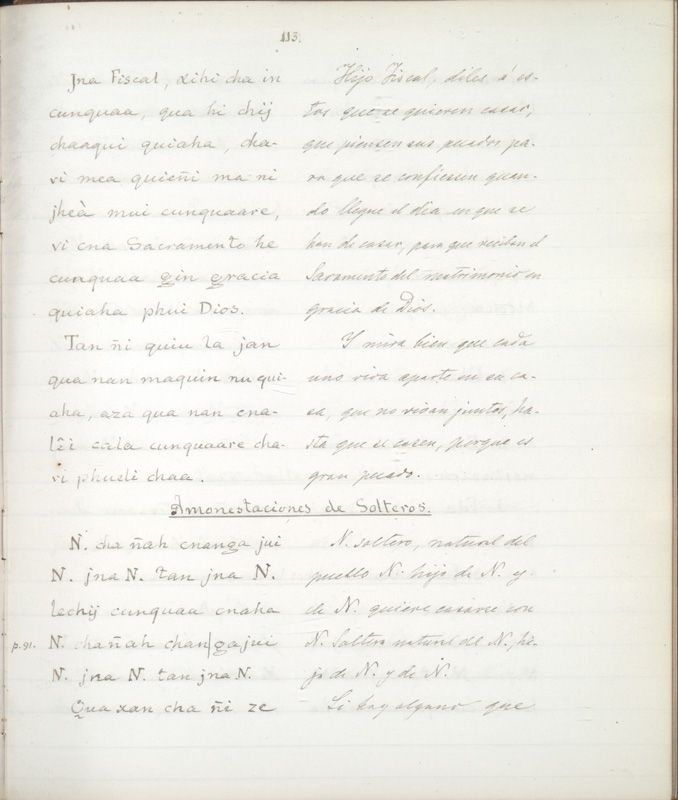 113.
Jna Fiscal, xihi cha in
cunquaa, qua hi chij
chaaqui quiaha, cha-
vi mea quieñi ma ni
jheà mui cunquaare,
vi cna Sacramento he
cunquaa gin gracia
quiaha phui Dios.
Tan ñi quiu la jan
qua nan maquin nu qui-
aha, aza qua nan cna-
lêi cala cunquaare cha-
vi phueli chaa.
Hijo Fiscal, diles á es-
tos que se quieren casar,
que piensen sus pecados pa-
ra que se confiesen quan-
do llegue el dia en que se
han de casar, para que reciban el
Saramento del matrimonio en
gracia de Dios.
Y mira bien que cada
uno viva aparte en su ca-
sa, que no vivan juntos, ha-
sta que se casen, porque es
gran pecado.
Amonestaciones de Solteros.
N. cha ñah cnanga jui
N. jna N. tan jna N.
lechij cunquaa cnaha
p. 91. N. cha ñah chan|ga jui
N. jna N. tan jna N.
Qua xan cha ñi ze
N. soltero, natural del
pueblo N. hijo de N. y
de N. quiere casarse con
N. Soltera natural del N. hi-
ja de N. y de N.
Si hay alguno que